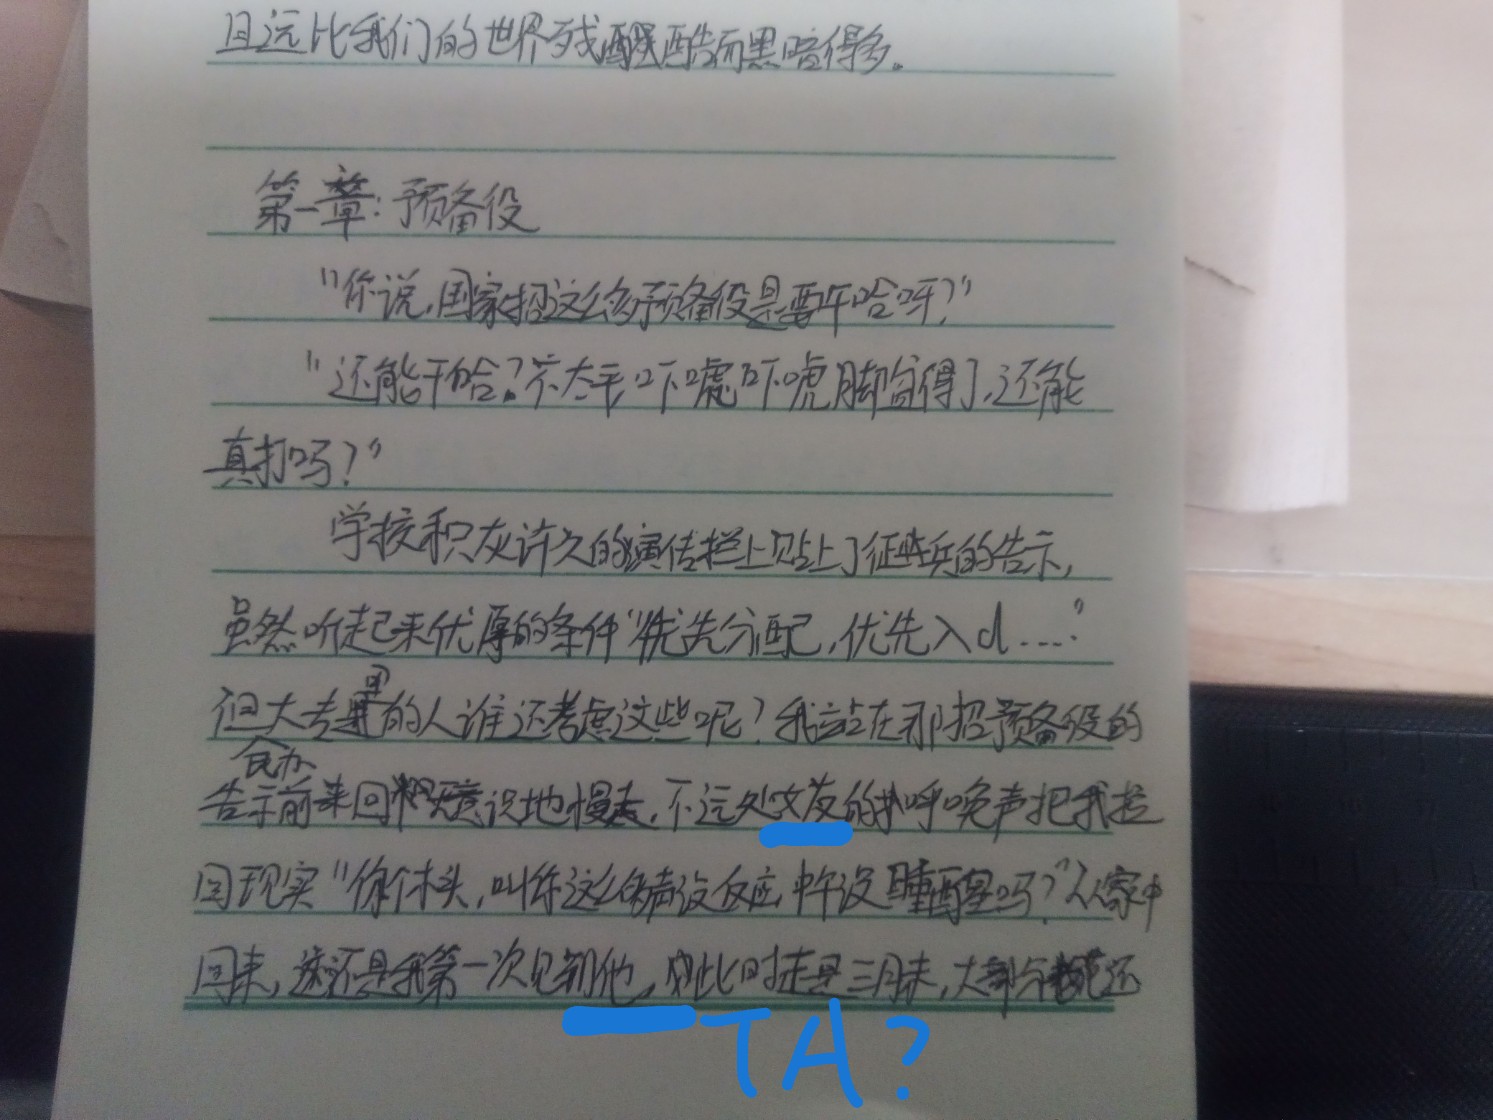 且远比我们的世界残酷而黑暗得多。
第一章：预备役
"你说，国家招这么多预备役是要干啥呀？"
"还能干啥？不太平，吓唬吓唬脚盆得了，还能
真打吗？"
学校积灰许久的宣传栏上贴上了征兵的告示，
虽然听起来优厚的条件"优先分配，优先入d....."
但大专里的人谁还考虑这些呢？我站在那招预备役的
告示前来回无意识地慢走，不远处女友的呼唤声把我拉
回现实"你个木头，叫你这么多声没反应，中午没睡醒吗？"从家中
回来，这还是我第一次见到他，此时是三月末，大部分还
TA?